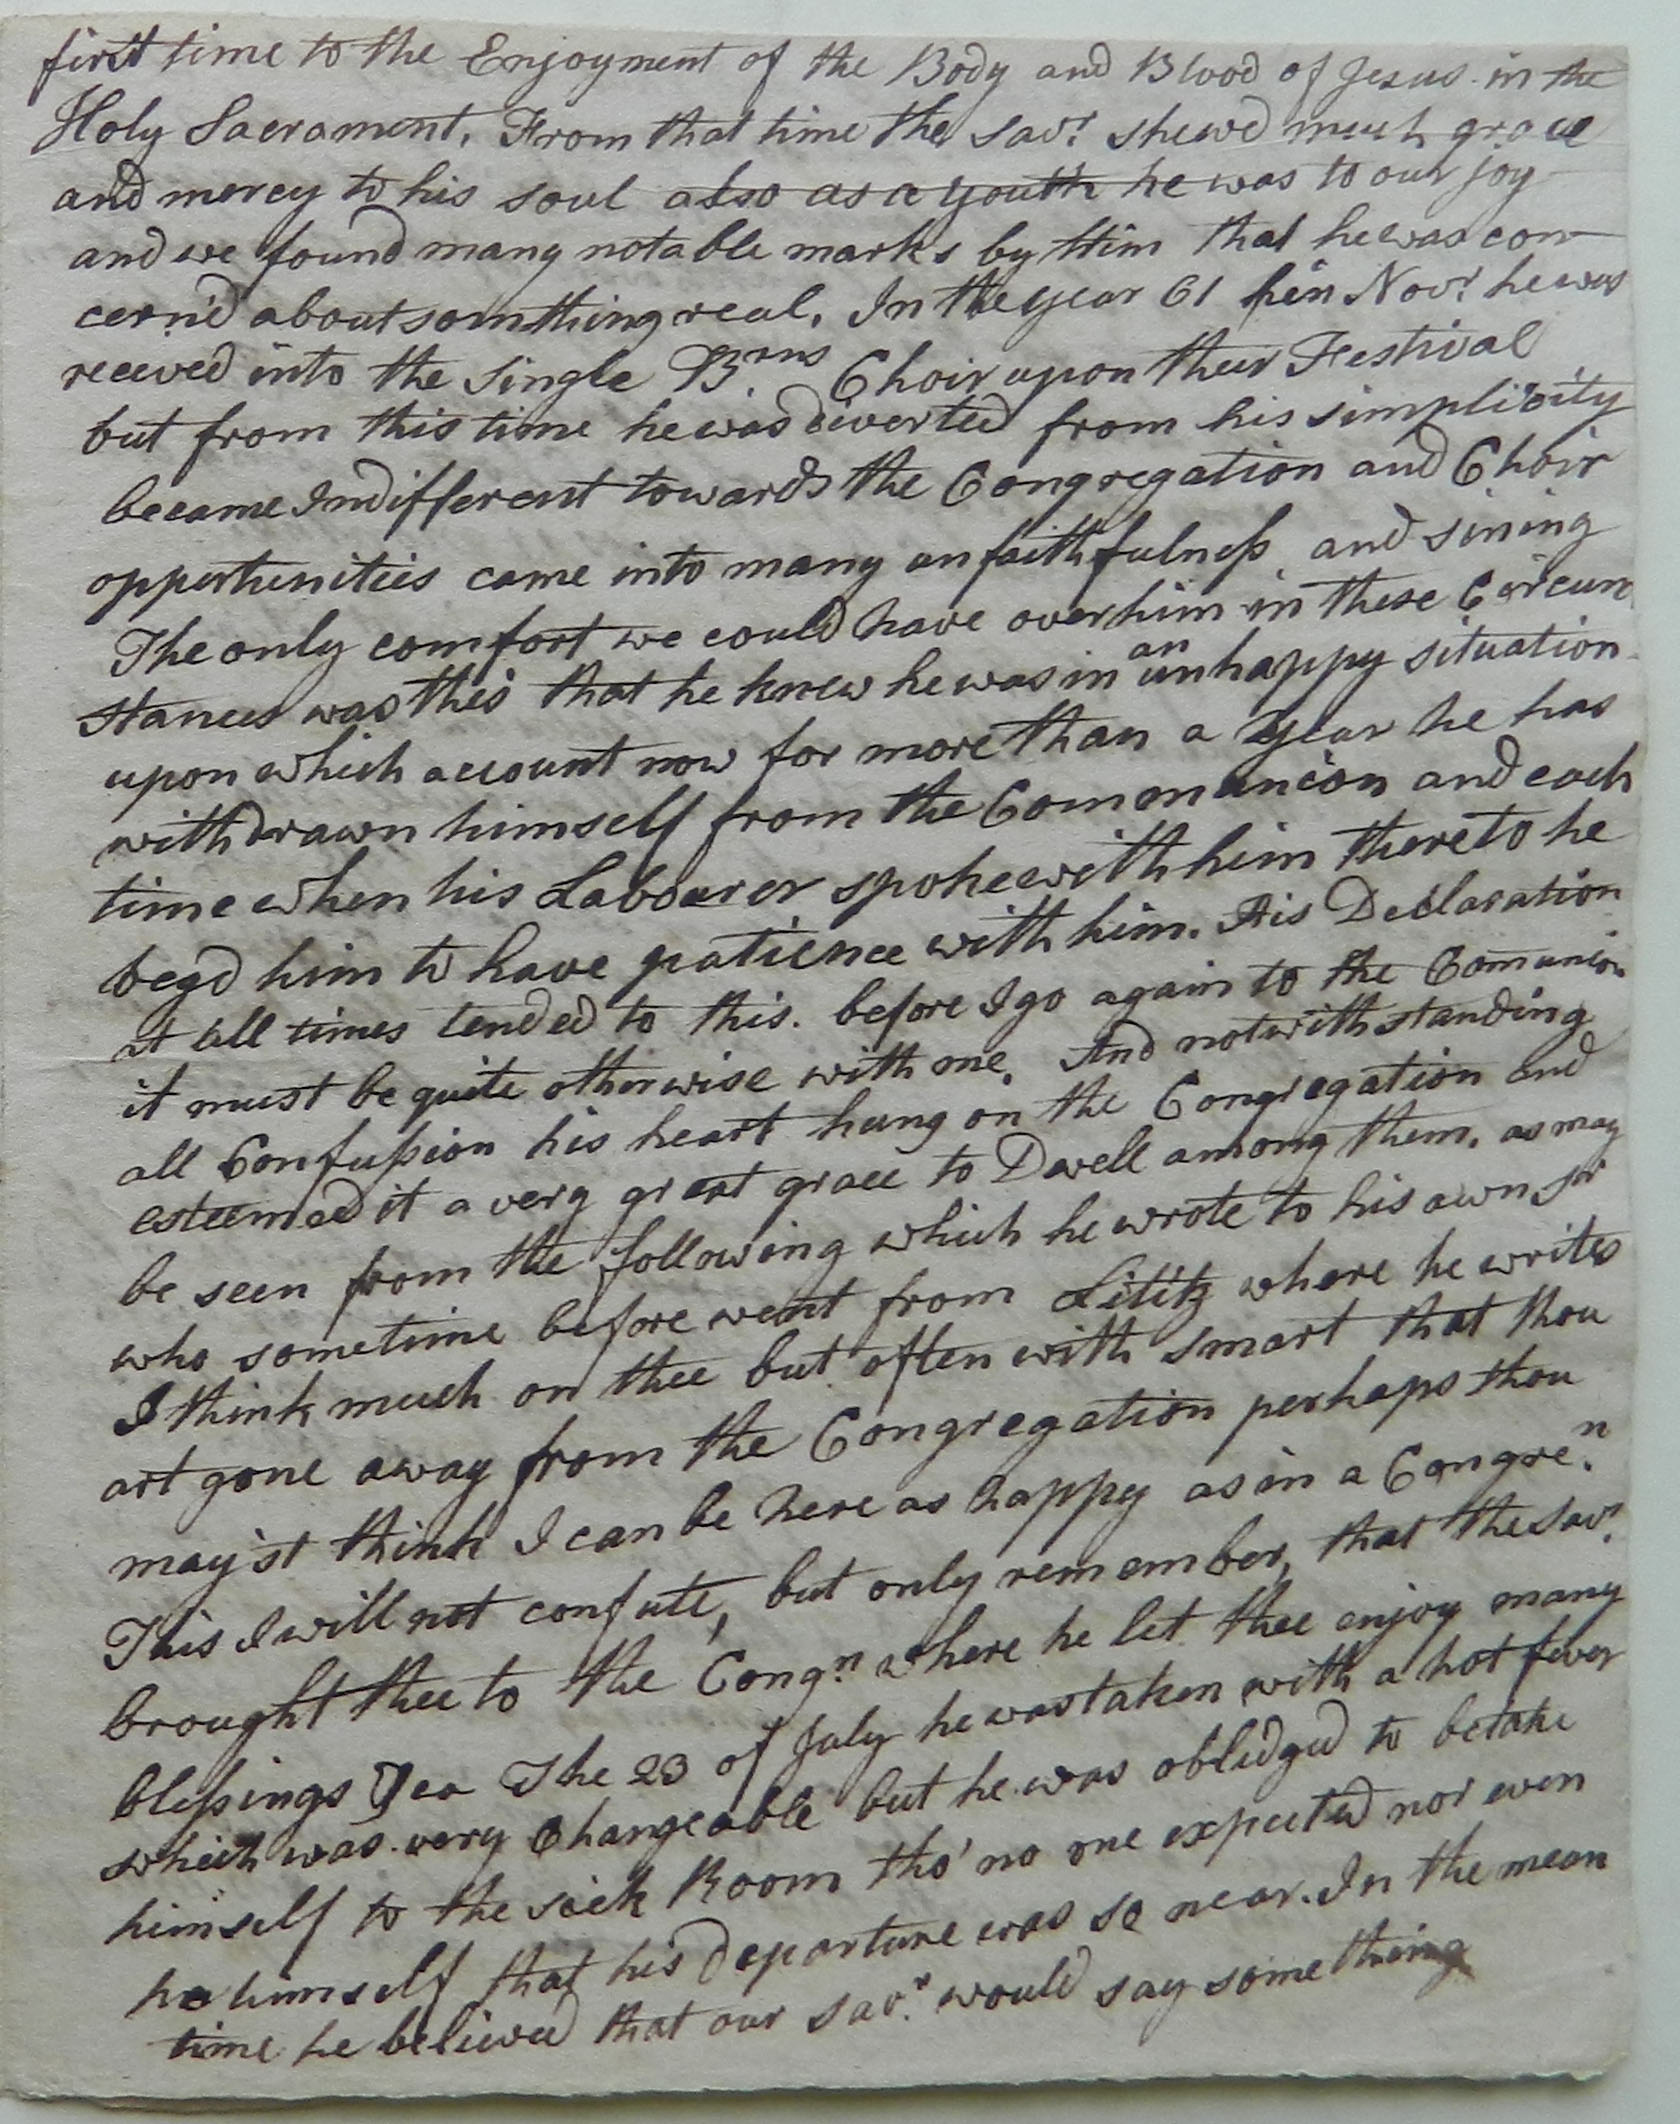 first time to the Enjoyment of the Body and Blood of Jesus in the
Holy Sacrament. From that time the Savr. shewd much grace
and mercy to his soul also as a youth he was to our joy
and we found many notable marks by Him that he was con-
cern'd about somthing real. In the year 61 in Novr. he was
received into the Single Brns. Choir upon their Festival
but from this time he was diverted from his simplicity
became Indifferent towards the Congregation and Choir
oppertunities came into many unfaithfulness and sining
The only comfort we could have over him in these Circum
stances was this that he knew he was in an unhappy situation
upon which account now for more than a year he has
withdrawn himself from the Communion and each
time when his Labourer spoke with him thereto he
begd him to have patience with him. His Declaration
at all times tended to this. before I go again to the Comunion
it must be quite otherwise with me. And notwithstanding
all Confussion his heart hung on the Congregation and
esteemed it a very great grace to Dwell among them. as may
be seen from the following which he wrote to his own Sr
who sometime before went from Lititz where he writes
I think much on thee but often with smart that thou
art gone away from the Congregation perhaps thou
may'st think I can be here as happy as in a Congren.
This I will not confute, but only remember, that the Savr.
brought thee to the Congn. where he let thee enjoy many
blessings Yea The 23 of July he was taken with a hot fever
which was very changeable but he was obledged to betake
himself to the sick Room tho' no one expected nor even
he himself that his departure was so near. In the mean
time he believed that our Savr. would say something